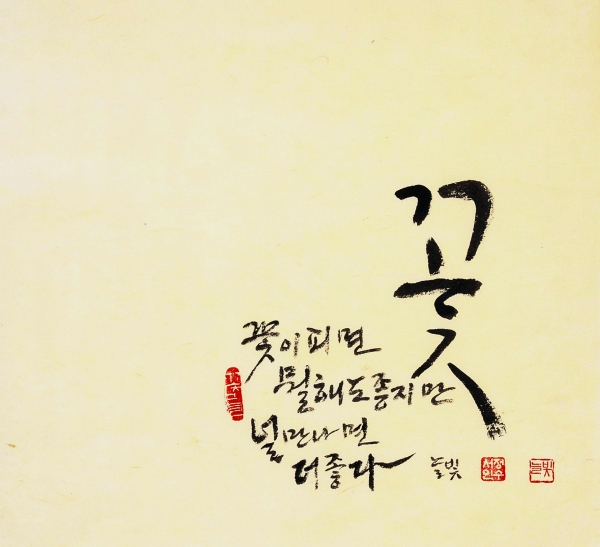 꽃
꽃이 피면
뭘해도 좋지만
널 만나면
더 좋다
늘빛